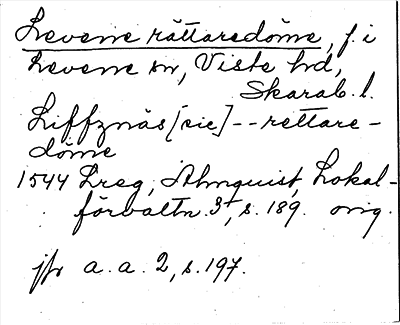 Levene rättaredöme, f. i
Levene sn, Viste hd,
Skarab. l.
Liffznäs [sic] -- rettare-
döme
1544 Lreg, Almquist, Lokal-
förvaltn. 3, s. 189. orig.
jfr a. a. 2, s. 197.